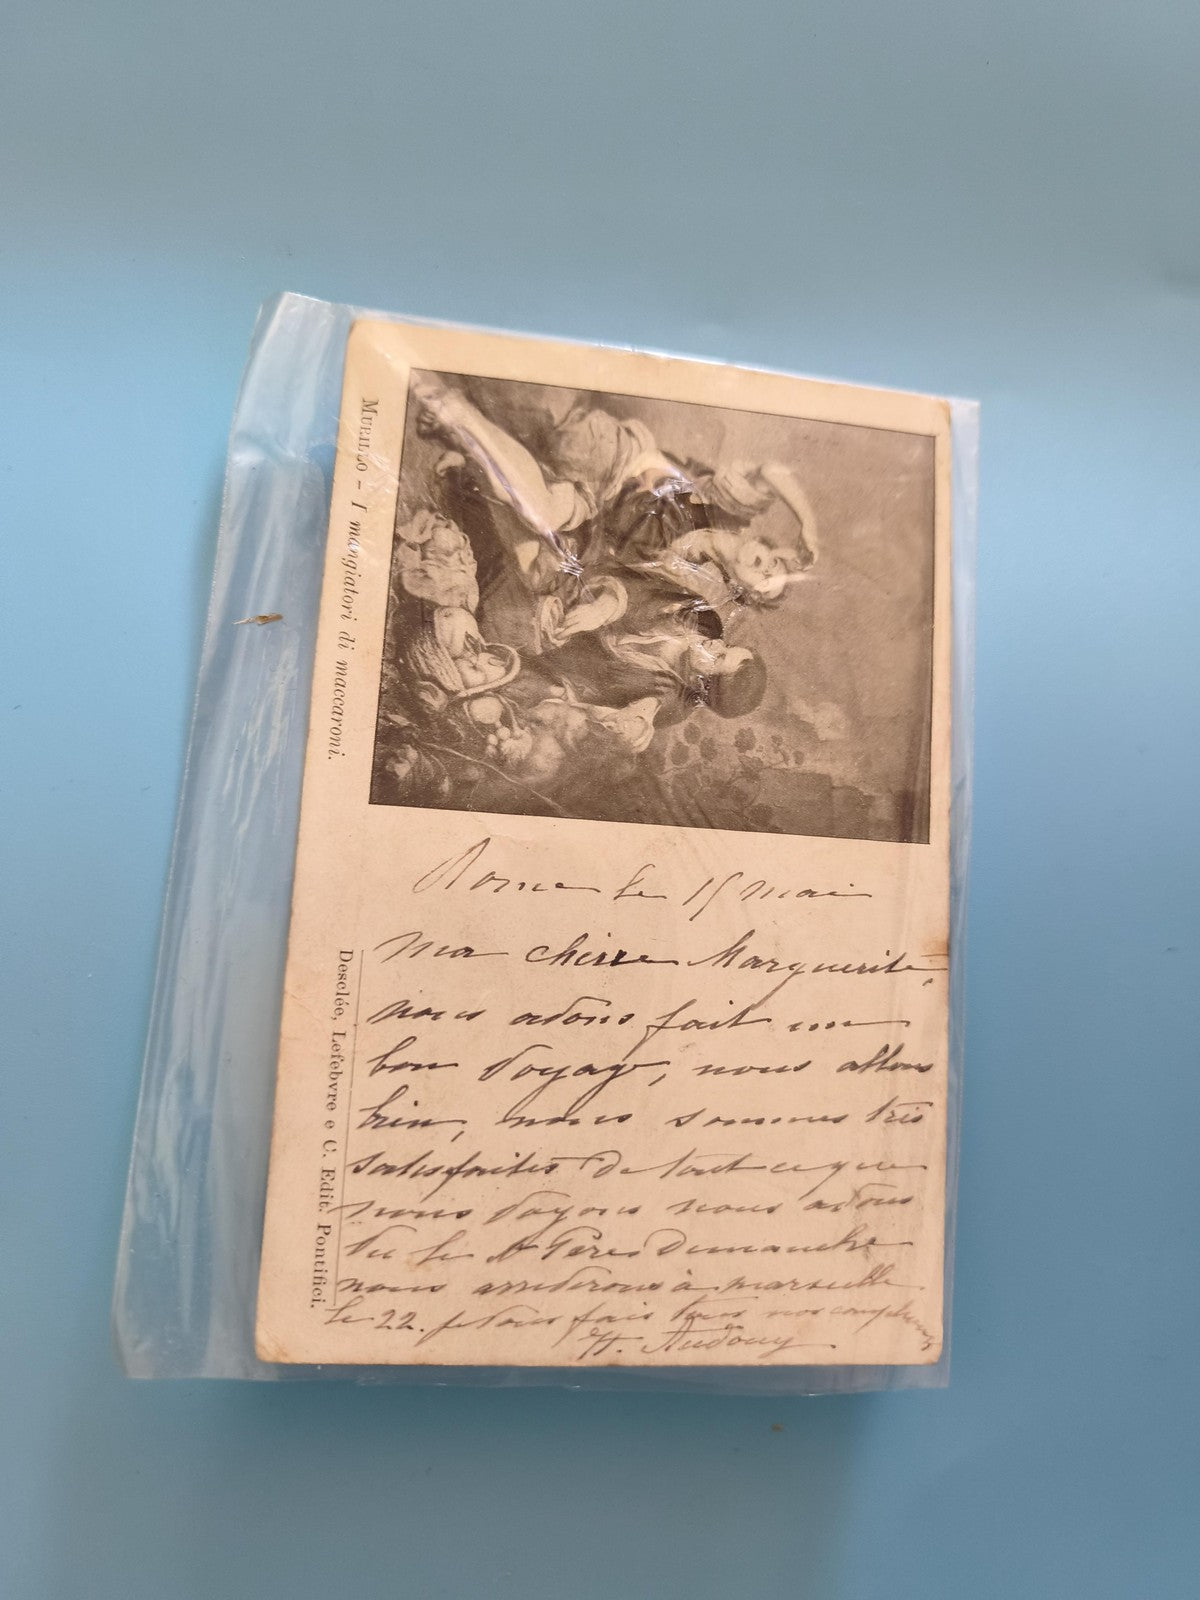 MURILLO – I mangiatori di maccaroni.
Rome le 15 mai
Ma chère Marguerite,
nous avons fait un
bon voyage, nous allons
bien, nous sommes très
satisfaites de tout ce que
nous voyons nous avons
vu le St Père Dimanche
nous arriverons à marseille
le 22. je vous fais tous nos compliments
H. Audouy
Desclée, Lefebvre e C. Edit. Pontifici.